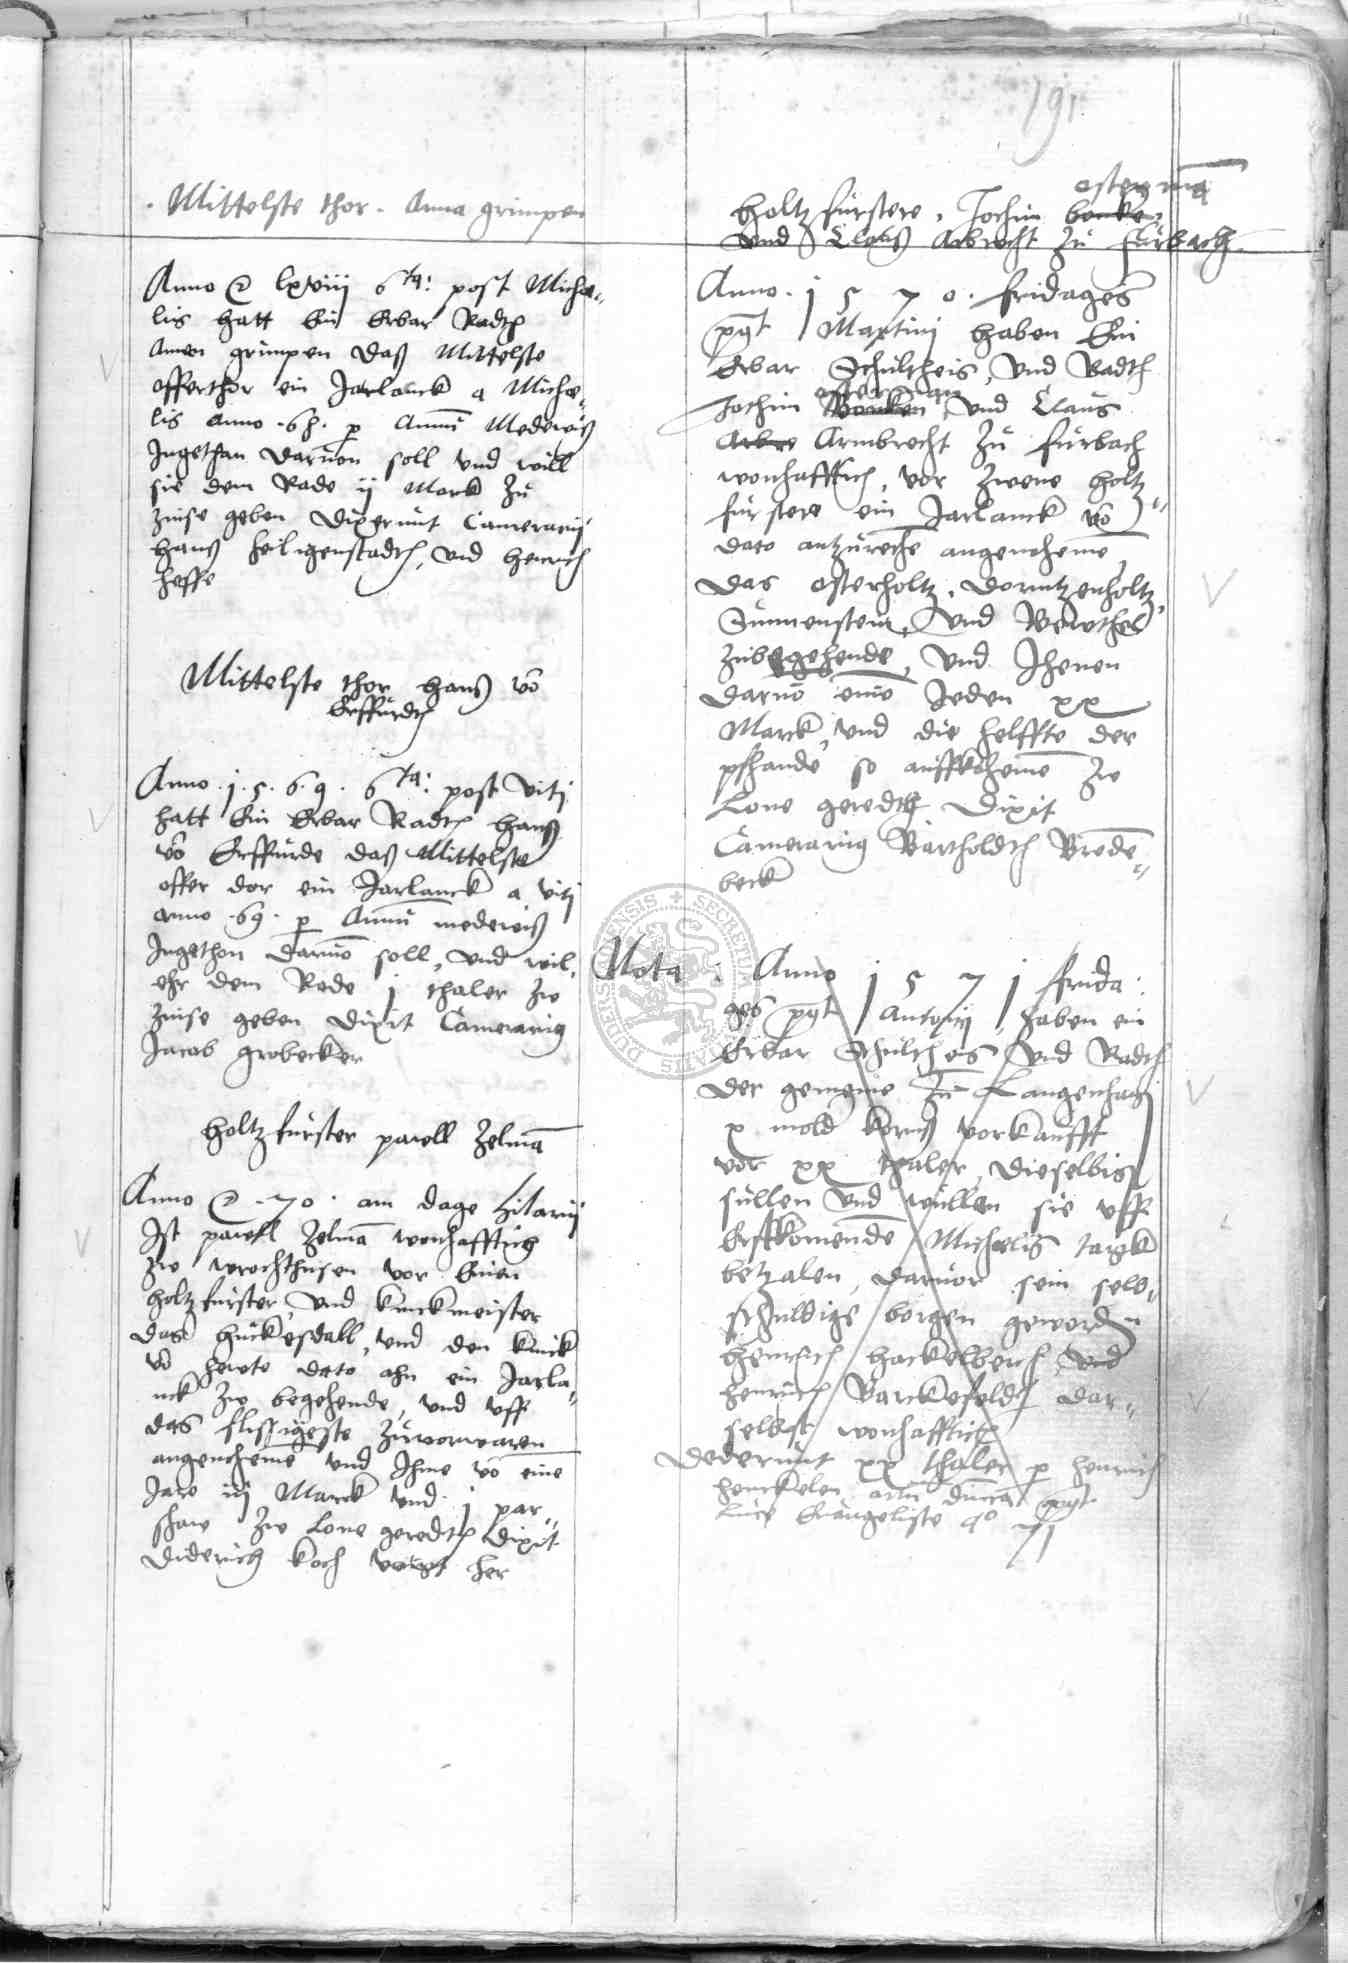 191
Mittelste thor. Anna grimpen
Anno lxviii 6ta: post Michae-
lis hatt Ein Erbar Radth
Annen grimpen daß Mittelste
offerthor ein Jarlanck a Michae-
lis anno 68. p Annu Mederiß
Ingethan daruon soll vnd will
sie dem Rade ij Marck zu
zinse geben Dixerunt Camerarij
Hanß heiligenstadth, vnd henrich
heffe
Mittelste thor hanß vo
Erffurdth
Anno 1.5.6.9. 6ta: post viti
hatt Ein Erbar Radth hanß
vo Erffurde daß Mittelste
offer dor ein Jarlanck a viti
anno .69. p Annu mederiß
Ingethon daruo soll, vnd wil
ehr dem Rade j thaler zw
zinse geben Dixit Camerarius
Jacob grobecker
holtzfurster pawell Zelma
Anno .70. am dage Hilarij
Ist pawell Zelma wonhafftich
zw wrochthusen vor Einen
holtzfurster, vnd knickmeister
das huckesdall, vnd den knick
vo heute dato ahn ein Jarla-
nck zw begehende, vnd vff
das flissigeste zuuorwaren
angenoheme vnd Ihme vo eine
Jare iij Marck vnd j par
schaw zw Lone geredth dixit
Diderich Koch voigt her
holtzfurstere, Jochim benke osterma
vnd Claus Arbrecht zu furbach.
Anno . 1 5 7 0 . fridages
pgt Martini haben Ein
Erbar Schultheis, vnd Radth
Jochim Benken osterman vnd Claus
Arbre Armbrecht zu furbach
wonhafftich, vor zwene holtz-
furstere ein Jarlanck vo
dato antzureche angenoheme
das osterholtz, dorntzenholtz,
Sunnenstein, vnd Werthel
zubegehende, vnd Ihenen
daruo eine Jeden xx
Marck, vnd die helffte der
pfhande so auffkoheme zw
Lone geredth Dixit
Camerarius Bartholdth Brede-
beck
Nota: Anno 1 5 7 1 frida-
ges pgt Antonij haben ein
Erbar Schultheis vnd Radth
der gemeine zu Langenhag
x mold korns vorkaufft
vor xx thaler, dieselbig
sullen vnd wullen sie vff
Erstkomende Michaelis targk
betzalen, daruor sein selb-
schuldige borgen geworden
Henrich hackelberch vnd
henrich Barckefeldt dar-
selbst wonhafftich
Dederunt xx thaler p henrich
henckelen
Luce Euangeliste ao 71
DUDERSTADENSIS SECRETUM